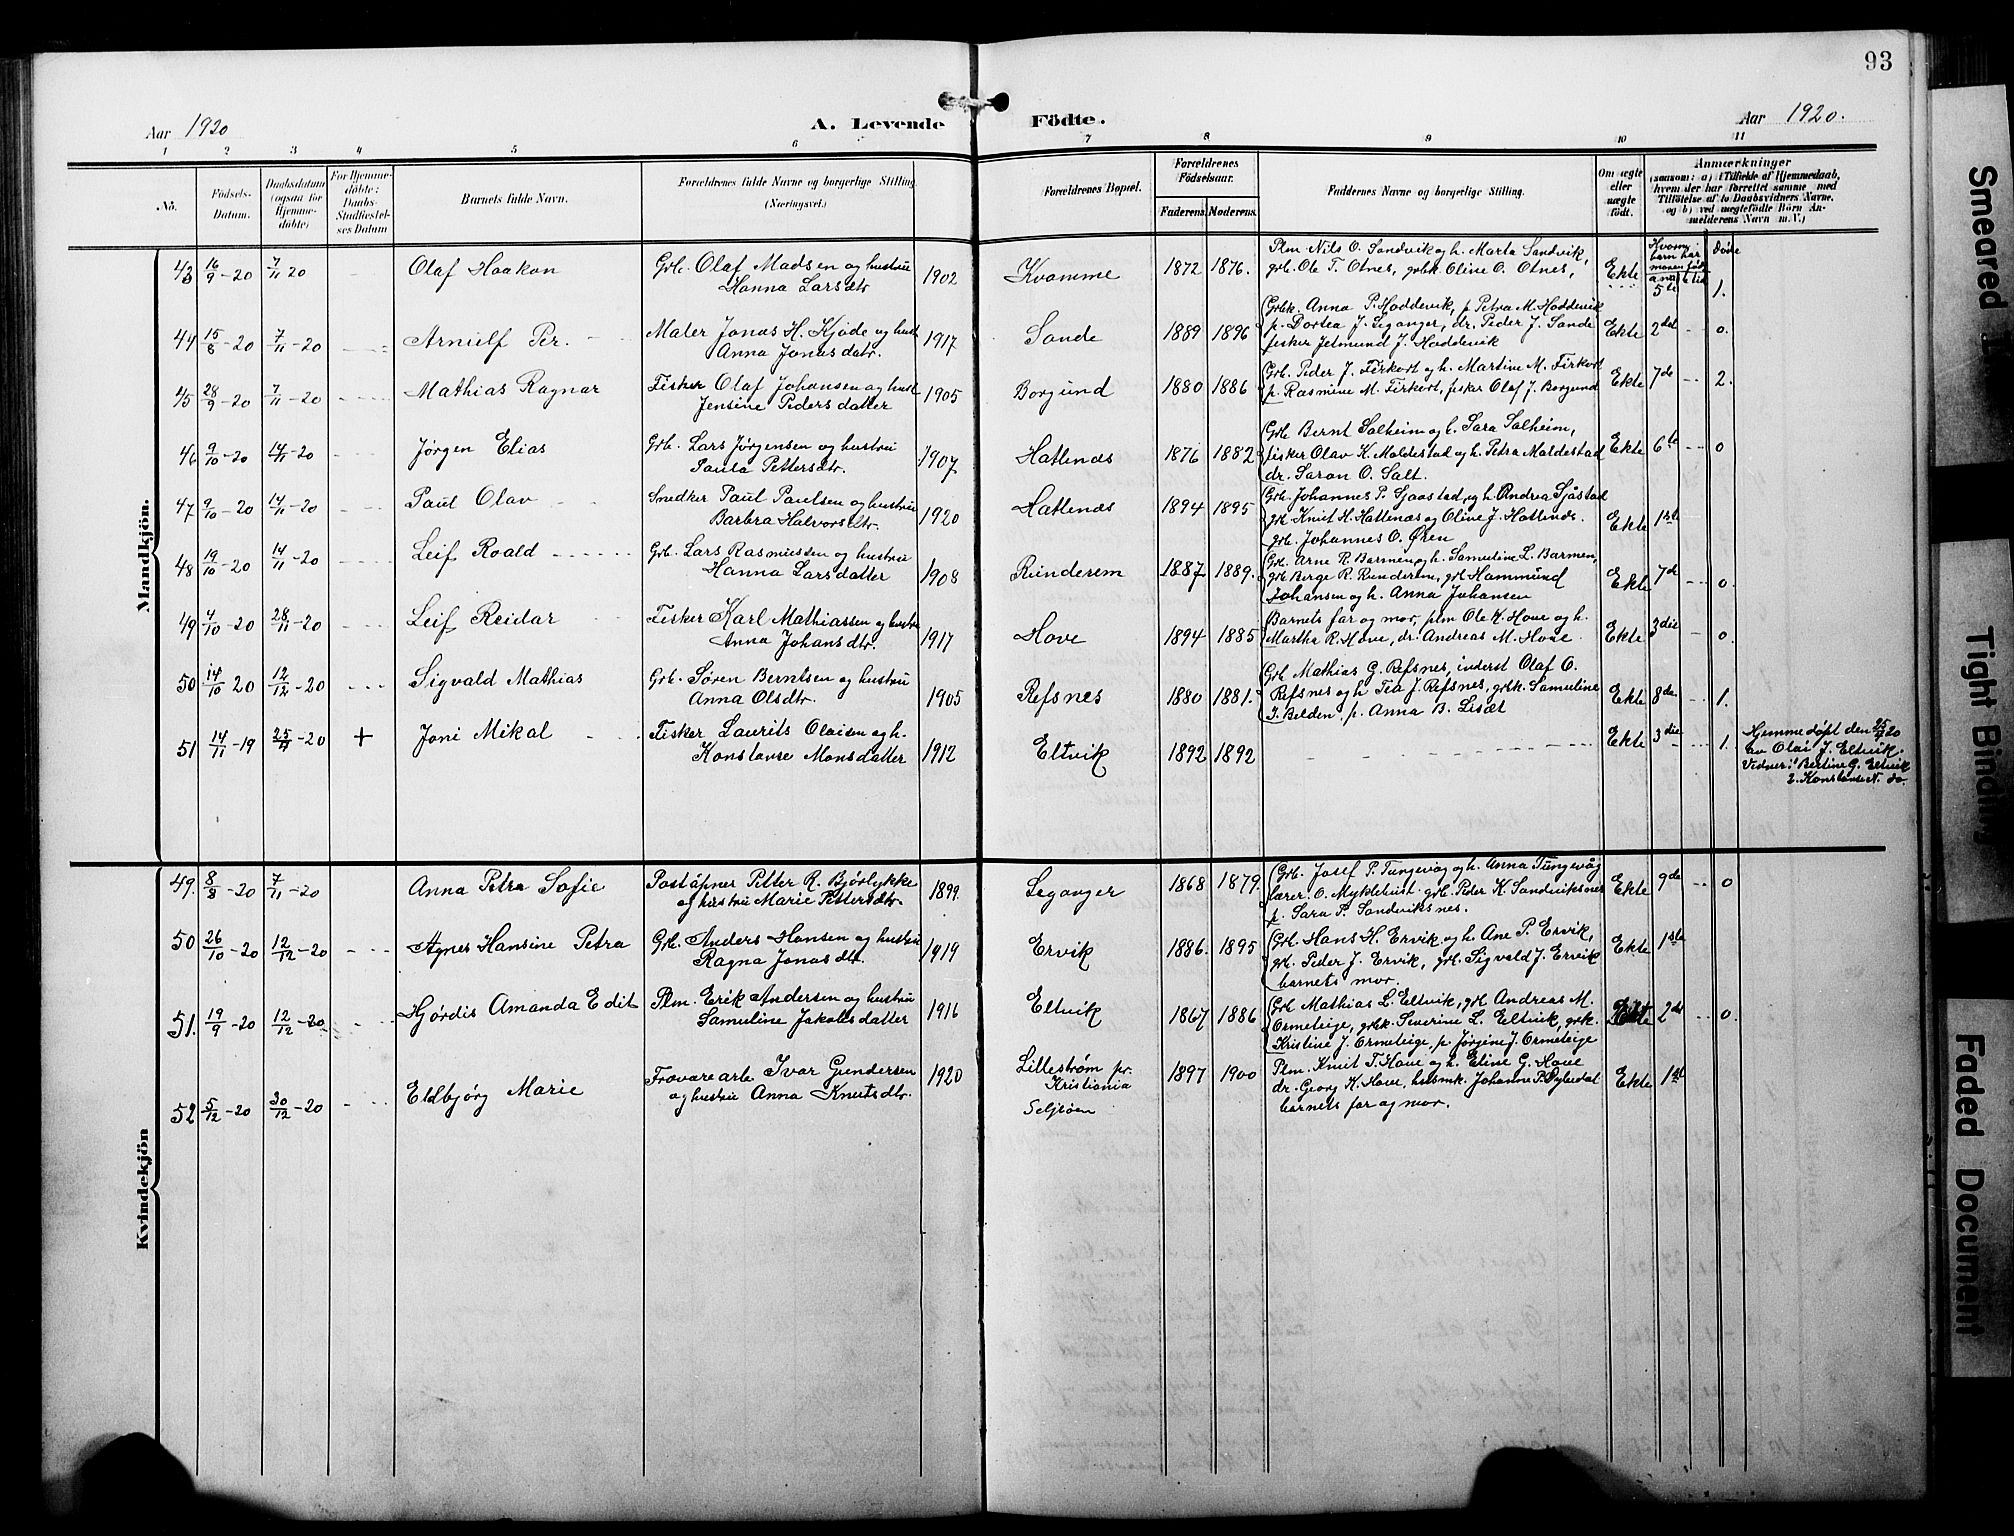 93
Aar 1920
A. Levende
Födte.
Aar 1920.
1 2 3 4 5 6 7 8 9 10 11
No.
Födsels-
Datum.
Daabsdatum
(ogsaa for
Hjemme-
döbte)
For Hjemme-
döbte:
Daabs-
Stadfæstel-
ses Datum
Barnets fulde Navn.
Forældrenes fulde Navne og borgerlige Stilling.
(Næringsvei.)
Forældrenes Bopæl.
Forældrenes
Födselsaar.
Faderens.
Moderens.
Faddernes Navne og borgerlige Stilling.
Om ægte
eller
uægte
födt.
Anmærkninger
(saasom: a) i Tilfælde af Hjemmedaab,
hvem der har forrettet samme med
Tilföielse af to Daabsvidners Navne,
og b) ved uægtefödte Börn An-
melderens Navn m. V.)
Mandkjön.
43 16/9 -20 7/11 20 Olaf Haakon
Grb. Olaf Madsen og hustru
Hanna Larsdtr 1902
Kvamme 1872 1876.
Plm. Nils O. Sandvik og h. Marta Sandvik,
grb. Ole T. Otnes, grbk. Oline O. Otnes,
Ekte
Hvormg
barn har
moren født
døde
5te 1.
44 15/8 -20 7/11 -20 Arnulf Per.
Maler Jonas H. Kjøde og hust
Anna Jonasdatr. 1917
Sande 1889 1896
Grbk. Anna P. Hoddevik, p Petra M. Hoddevik
p. Dortea J. Leganger, dr. Peder J. Sande
fisker Jetmund J. Hoddevik
Ekte 2det 0.
45 28/9 -20 7/11 -20 Mathias Ragnar
Fisker Olaf Johansen og hust
Jensine Pedersdatter 1905
Borgund 1880 1886
Grb. Peder J. Firkort og h. Martine M. Firkort
p. Rasmine M. Firkort, fisker Olaf J. Borgund
Ekte 7de 2.
46 9/10 -20 14/11 -20 Jørgen Elias
Grb. Lars Jørgensen og hustru
Paula Pettersdtr. 1907
Hatlenes 1876 1882
Grb Bernt Salheim og h. Sara Salheim,
fisker Olav K. Maldestad og h. Petra Maldestad
dr. Saron O. Salt.
Ekte 6te 0
47 9/10 -20 14/11 -20 Paul Olav
Snedker Paul Paulsen og hustru
Barbra Halvorsdtr. 1920
Hatlenes 1894 1895
Grb. Johannes P. Sjaastad, og h. Andrea Sjåstad
grb. Knut H. Hatlenæs og Oline J. Hatlenæs.
grb. Johannes O. Øren
Ekte 1ste
48 19/10 -20 14/11 -20 Leif Roald
Grb. Lars Rasmussen og hustru
Hanna Larsdatter 1908
Runderem 1887 1889.
Grb. Arne R. Barmen og h. Samuline L. Barmen,
grb Berge R. Runderem, grb Hammund
Johansen og h. Anna Johansen
Ekte 7de 0.
49 4/10 -20 28/11 -20 Leif Reidar
Fisker Karl Mathiassen og hustru
Anna Johansdtr. 1917
Hove 1894 1885
Barnets far og mor, plm Ole K. Hove og h.
Martha R. Hove, dr. Andreas M. Hove.
Ekte 3die 0.
50 14/10 20 12/12 -20 Sigvald Mathias
Grb. Søren Berntsen og hustru
Anna Olsdtr. 1905
Refsnes 1880 1881.
Grb Mathias G. Refsnes, inderst Olaf O.
Refsnes og h Tea J. Refsnes, grbk. Samuline
J. Belden, p. Anna B. Lisæt
Ekte 8de 1.
51 14/11 -19 -20 + Joni Mikal
Fisker Laurits Olaisen og h.
Konstanse Monsdatter 1912
Eltvik 1892 1892
Ekte 3die 1.
Hjemmedøpt den 20
av Olai J. Eltvik.
Vidner: 1 Bertine G. Eltvik
2. Konstanse N. do.
Kvindekjön
49. 8/8 -20 7/11 -20 Anna Petra Sofie
Poståpner Petter R. Bjørlykke
og hustru Marie Pettersdtr. 1899.
Leganger 1868 1879
Grb. Josef P. Tungevåg og h. Anna Tungevåg
lærer. O. Myklebust. grb. Peder K. Sandviksnes
p. Sara P. Sandviksnes.
Ekte 9de 0
50 26/10 -20 12/12 -20 Agnes Hansine Petra
Grb. Anders Hansen og hustru
Ragna Jonasdtr. 1919
Ervik 1886. 1895
Grb. Hans H. Ervik og h. Ane P. Ervik,
grb. Peder J. Ervik, grb. Sigvald J. Ervik
barnets mor.
Ekte 1ste
51. 19/9 -20 12/12 -20 Hjørdis Amanda Edit
Plm. Erik Andersen og hustru
Samuline Jakobsdatter 1916
Eltvik 1867 1886
Grb Mathias L. Eltvik, grb Andreas M.
Ormeteige, grbk. Severine L. Eltvik, grbk.
Kristine J. Ormeteige, p. Jørgine J. Ormeteige
Ekte 2det 0.
52 5/12 -20 30/12 -20 Eldbjørg Marie
Frøvarearb Ivar Gundersen
og hustru Anna Knutsdtr. 1920
Lillestrøm pr.
Kristiania
Seljeøen
1897 1900
Plm. Knut T. Hove og h. Eline G. Hove
dr. Georg K. Hove, husmk. Johanne P. Dybedal
barnets far og mor.
Ekte 1ste
Tight Binding
Faded Document